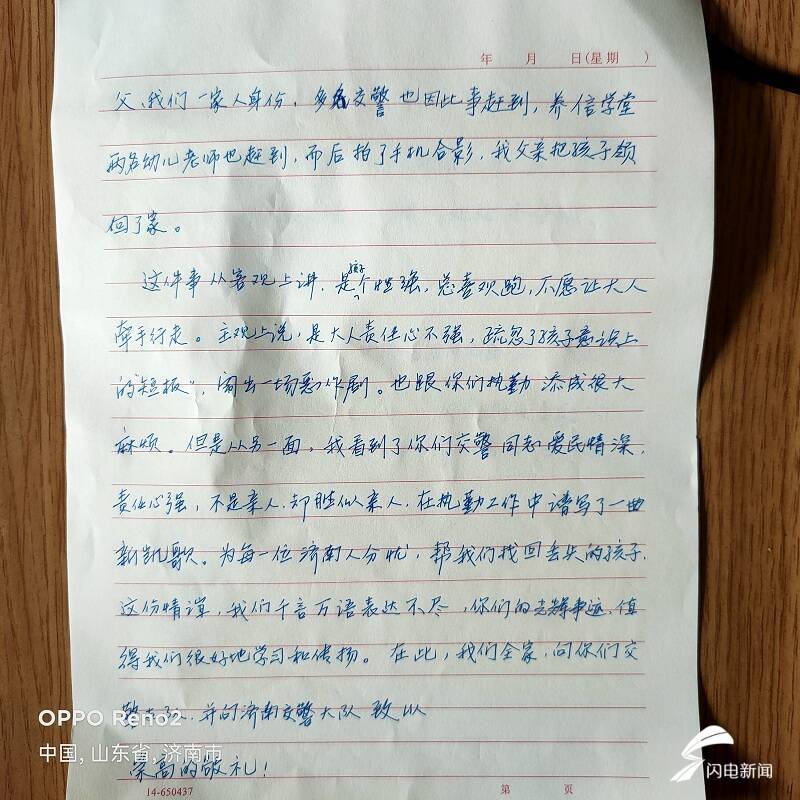 年 月 日(星期 )
父、我们一家人身份，多名交警也因此事赶到，养信学堂
两名幼儿老师也赶到，而后拍了手机合影，我父亲把孩子领
回了家。
这件事从客观上讲，是孩子个性强，总喜欢跑，不愿让大人
牵手行走。主观上说，是大人责任心不强，疏忽了孩子意识上
的"短板"，闹出一场恶作剧。也跟你们执勤添成很大
麻烦。但是从另一面，我看到了你们交警同志爱民情深，
责任心强，不是亲人，却胜似亲人，在执勤工作中谱写了一曲
新凯歌。为每一位济南人分忧，帮我们找回丢失的孩子，
这份情谊，我们千言万语表达不尽，你们的光辉事迹，值
得我们很好地学习和传扬。在此，我们全家，向你们交
警 并向济南交警大队致以
崇高的敬礼！
OPPO Reno2
中国, 山东省, 济南市
14-650437
第 页
闪电新闻